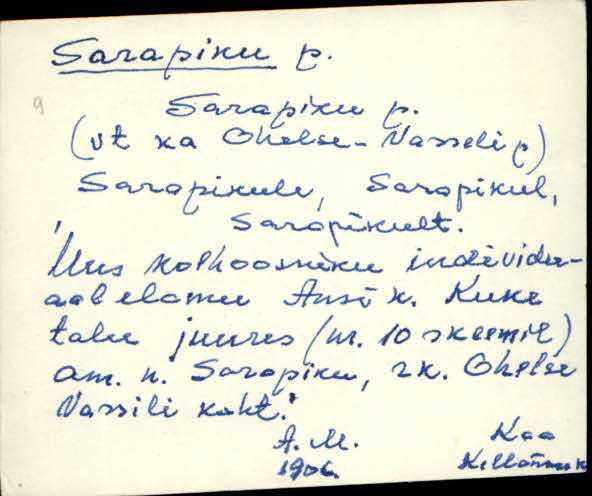 Sarapiku p.
9
Sarapiku p.
(vt ka Ohelse-Vasseli p)
Sarapikule, Sarapikul,
Sarapikult.
"Uus kolhoosniku individu-
aalelamu Ansi k. Kuke
talu juures (nr. 10 skeemil)
am. n. Sarapiku, rk. Ohelse
Vassili koht."
A. M. Kaa
1906. Killõmsk